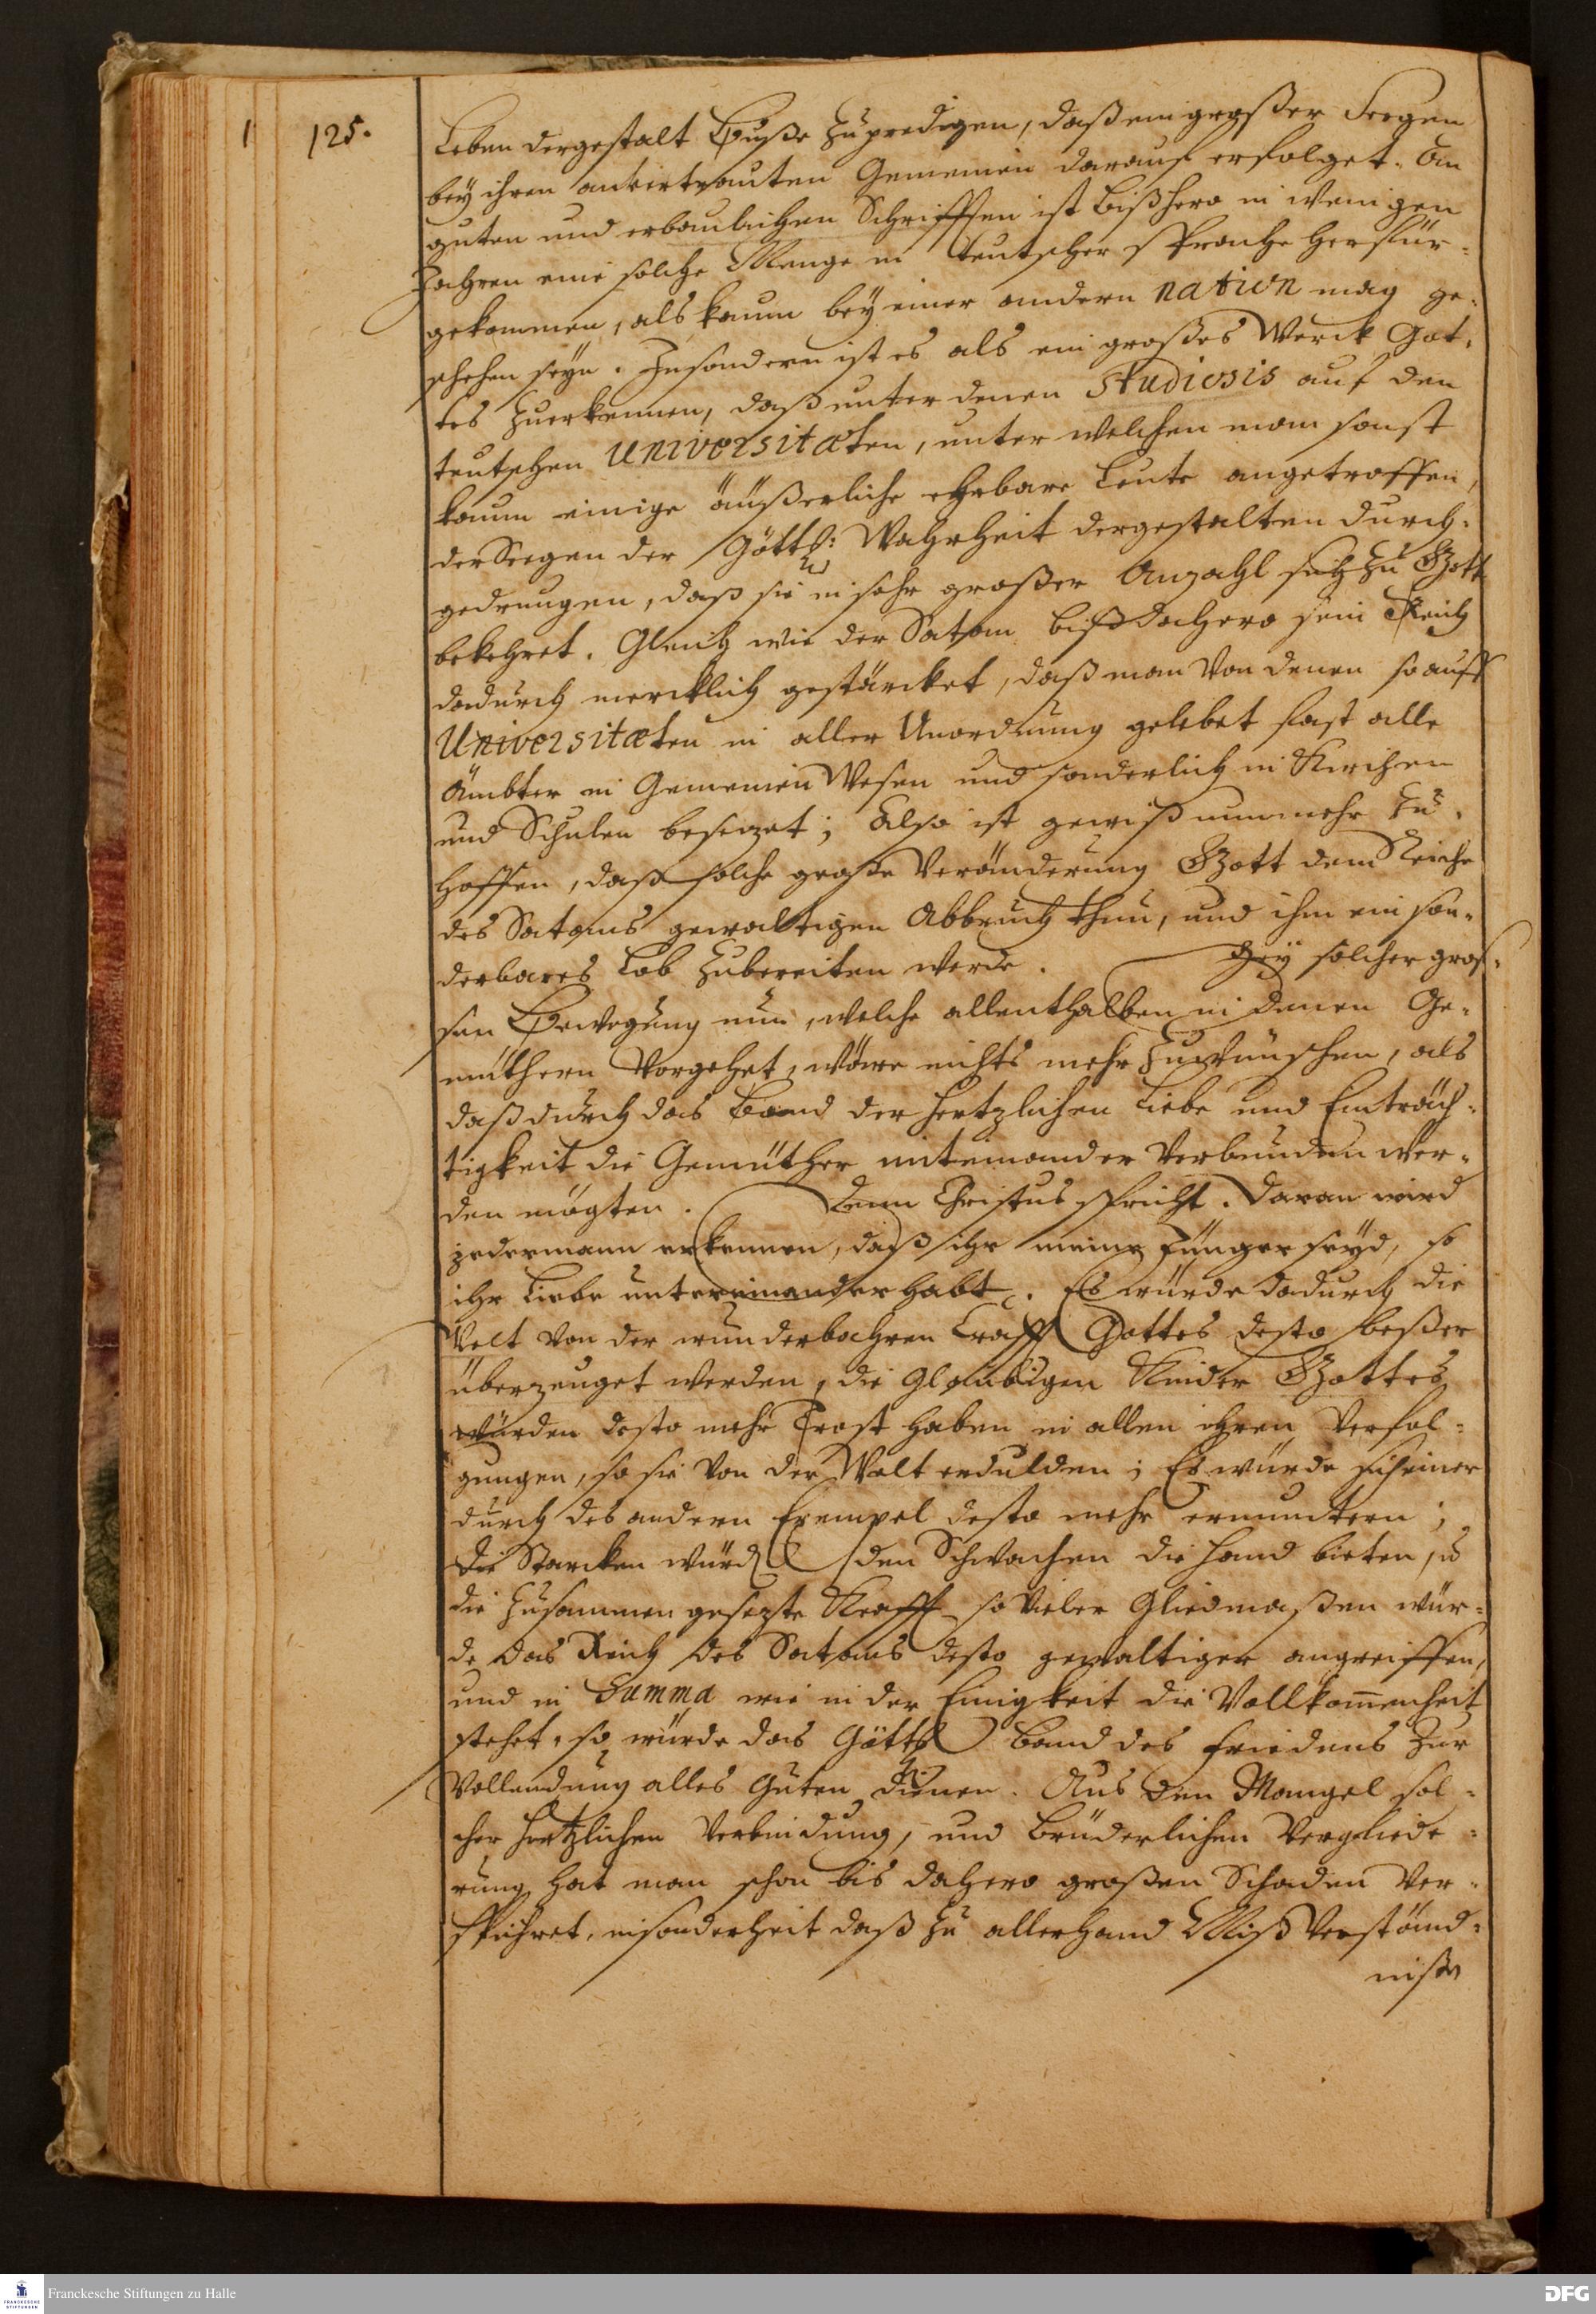 125.
Leben dergestalt Buße zu predigen, daß ein großer Seegen
bey ihren anvertrauten Gemeinen darauf erfolget. An
guten und erbaulichen Schrifften ist bißhero in wenigen
Jahren eine solche Menge in teutscher Sprache herfür-
gekommen, als kaum bey einer andern nation mag ge-
schehen seyn. Insondern ist es als ein großes Werck Got-
tes zuerkennen, daß unter denen Studiosis auf den
teutschen Universitæten, unter welchen man sonst
kaum einige äußerliche ehrbare Leute angetroffen,
der Seegen der Göttl: Wahrheit dergestalten durch-
gedrungen, daß sie in sehr großer Anzahl sich zu Gott
bekehret. Gleich wie der Satan biß dahero sein Reich
dadurch mercklich gestärcket, daß man von denen so auff
Universitæten in aller Unordnung gelebet fast alle
Ämbter in Gemeinen Wesen und sonderlich in Kirchen
und Schulen besezet; Also ist gewiß nunmehr zu-
hoffen, daß solche große Veränderung Gott dem Reiche
des Satans gewaltigen Abbruch thun, und ihm ein son-
derbares Lob zubereiten werde. Bey solcher gros-
sen Bewegung nun, welche allenthalben in denen Ge-
müthern vorgehet, wäre nichts mehr zuwünschen, als
daß durch das Band der hertzlichen Liebe und Einträch-
tigkeit die Gemüther miteinander verbunden wer-
den mögten. Denn Christus spricht. Daran wird
jedermann erkennen, daß ihr meine Jünger seyd, so
ihr Liebe untereinander habt. Es würde dadurch die
Welt von der wunderbahren Crafft Gottes desto beßer
überzeuget werden, die Glaubigen Kinder Gottes
würden desto mehr Trost haben in allen ihren Verfol-
gungen, so sie von der Welt erdulden; Es würde sich einer
durch des andern Exempel desto mehr ermuntern;
Die Starcken würden den Schwachen die Hand bieten, u
die zusammen gesezte Krafft so vieler Gliedmaßen wür-
de das Reich des Satans desto gewaltiger angreiffen,
und in Summa wie in der Einigkeit die Vollkom̄enheit
stehet, so würde das Göttl Band des Friedens zur
Vollendung alles Guten dienen. Aus den Mangel sol-
cher hertzlichen Verbindung, und brüderlichen Vergliede-
rung hat man schon bis dahero großen Schaden ver-
spühret, insonderheit daß zu allerhand Miß Verständ-
nißen
Franckesche Stiftungen zu Halle
DFG